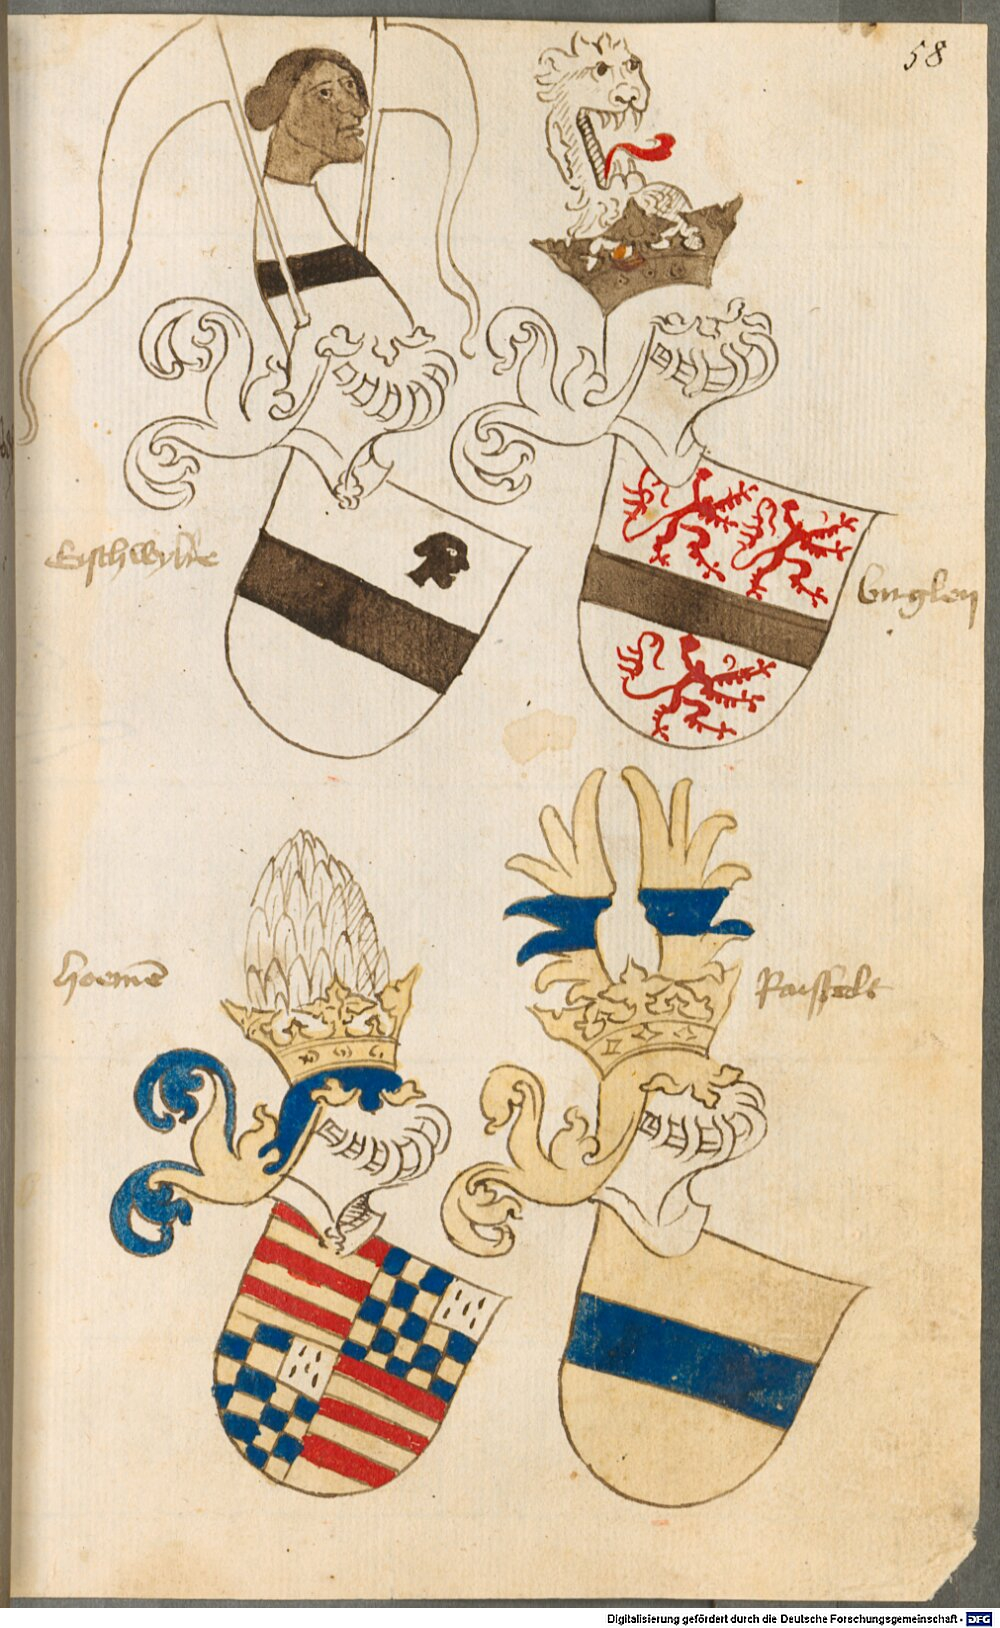 58
Eysthwylre
Gugley
Hoemē
Raissedt
Digitalisierung gefördert durch die Deutsche Forschungsgemeinschaft - DFG